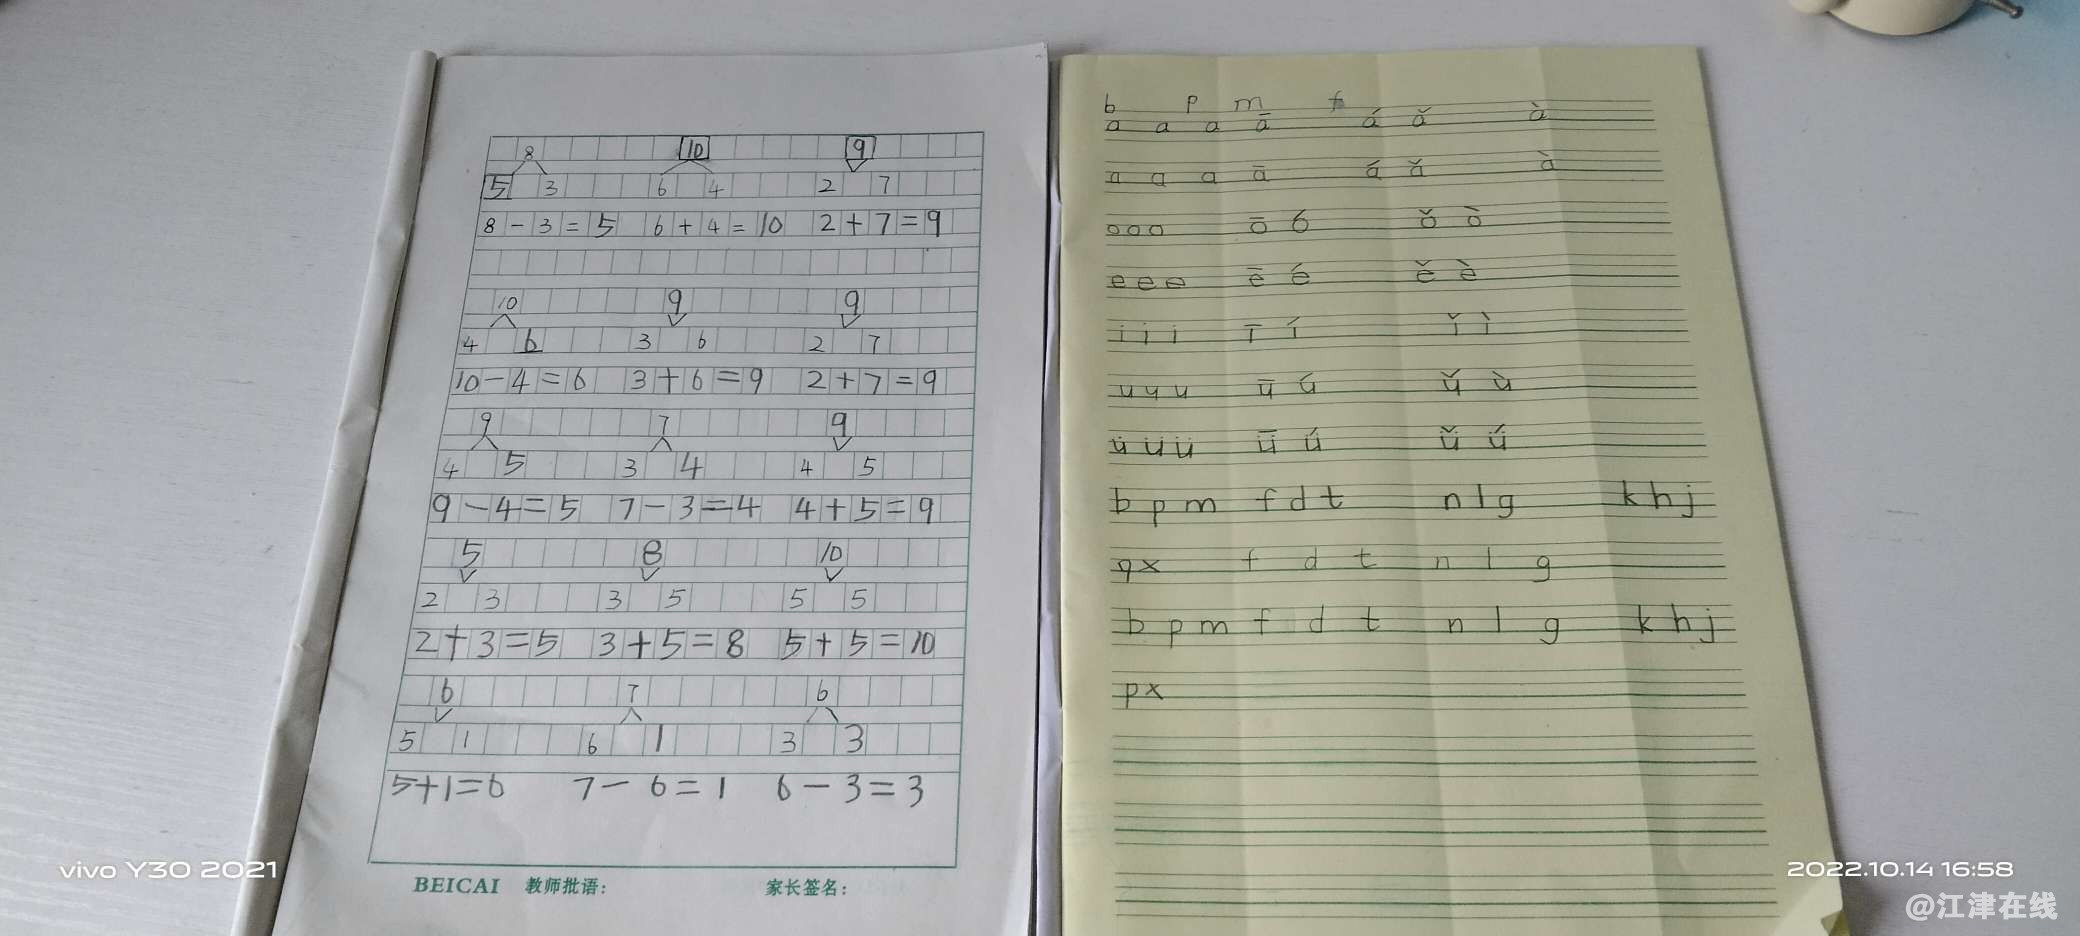 8 10 9
5 3 6 4 2 7
8-3=5 6+4=10 2+7=9
10 9 9
4 6 3 6 2 7
10-4=6 3+6=9 2+7=9
9 7 9
4 5 3 4 4 5
9-4=5 7-3=4 4+5=9
5 8 10
2 3 3 5 5 5
2+3=5 3+5=8 5+5=10
6 7 6
5 1 6 1 3 3
5+1=6 7-6=1 6-3=3
BEICAI 教师批语: 家长签名:
b p m f
a a a ā á ǎ à
a a a ā á ǎ à
o o o ō ó ǒ ò
e e e ē é ě è
i i i ī í ǐ ì
u u u ū ú ǔ ù
ü ü ü ǖ ǘ ǚ ǘ
b p m f d t n l g k h j
q x f d t n l g
b p m f d t n l g k h j
p x
vivo Y30 2021
2022.10.14 16:58
@江津在线